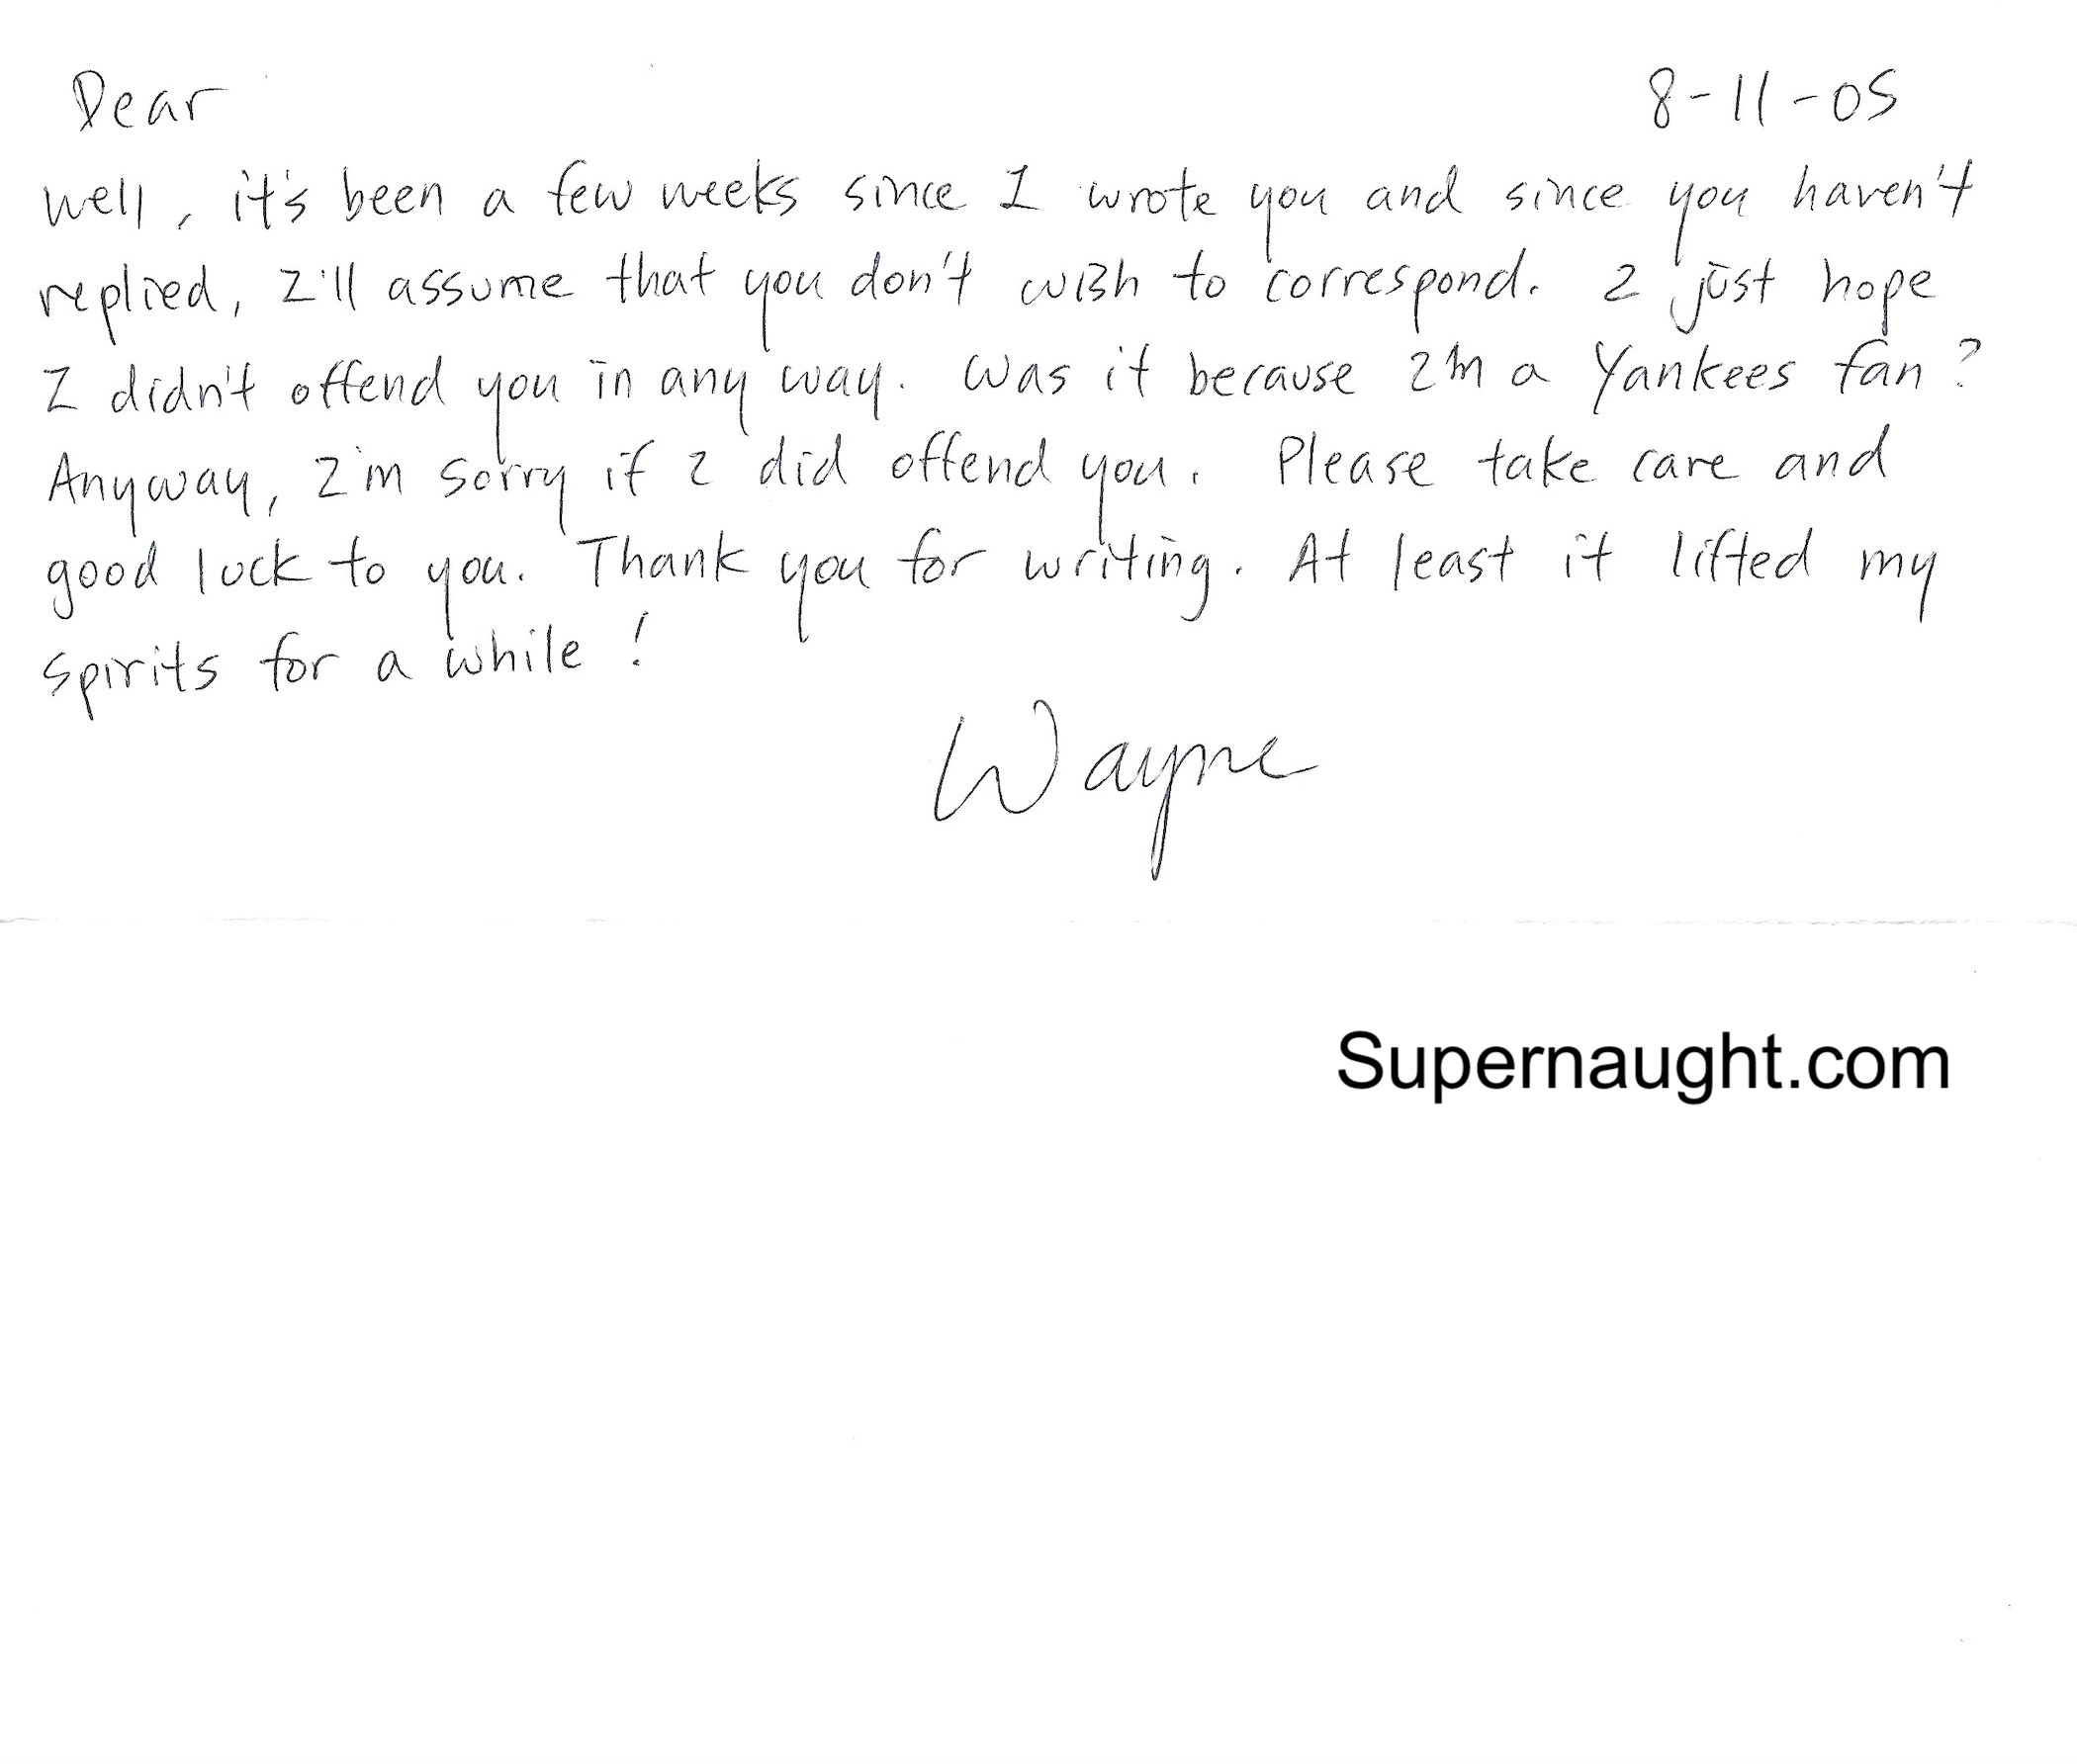 Dear 8-11-05
Well, it's been a few weeks since I wrote you and since you haven't
replied, I'll assume that you don't wish to correspond. I just hope
I didn't offend you in any way. Was it because I'm a Yankees fan?
Anyway, I'm sorry if I did offend you. Please take care and
good luck to you. Thank you for writing. At least it lifted my
spirits for a while!
Wayne
Supernaught.com